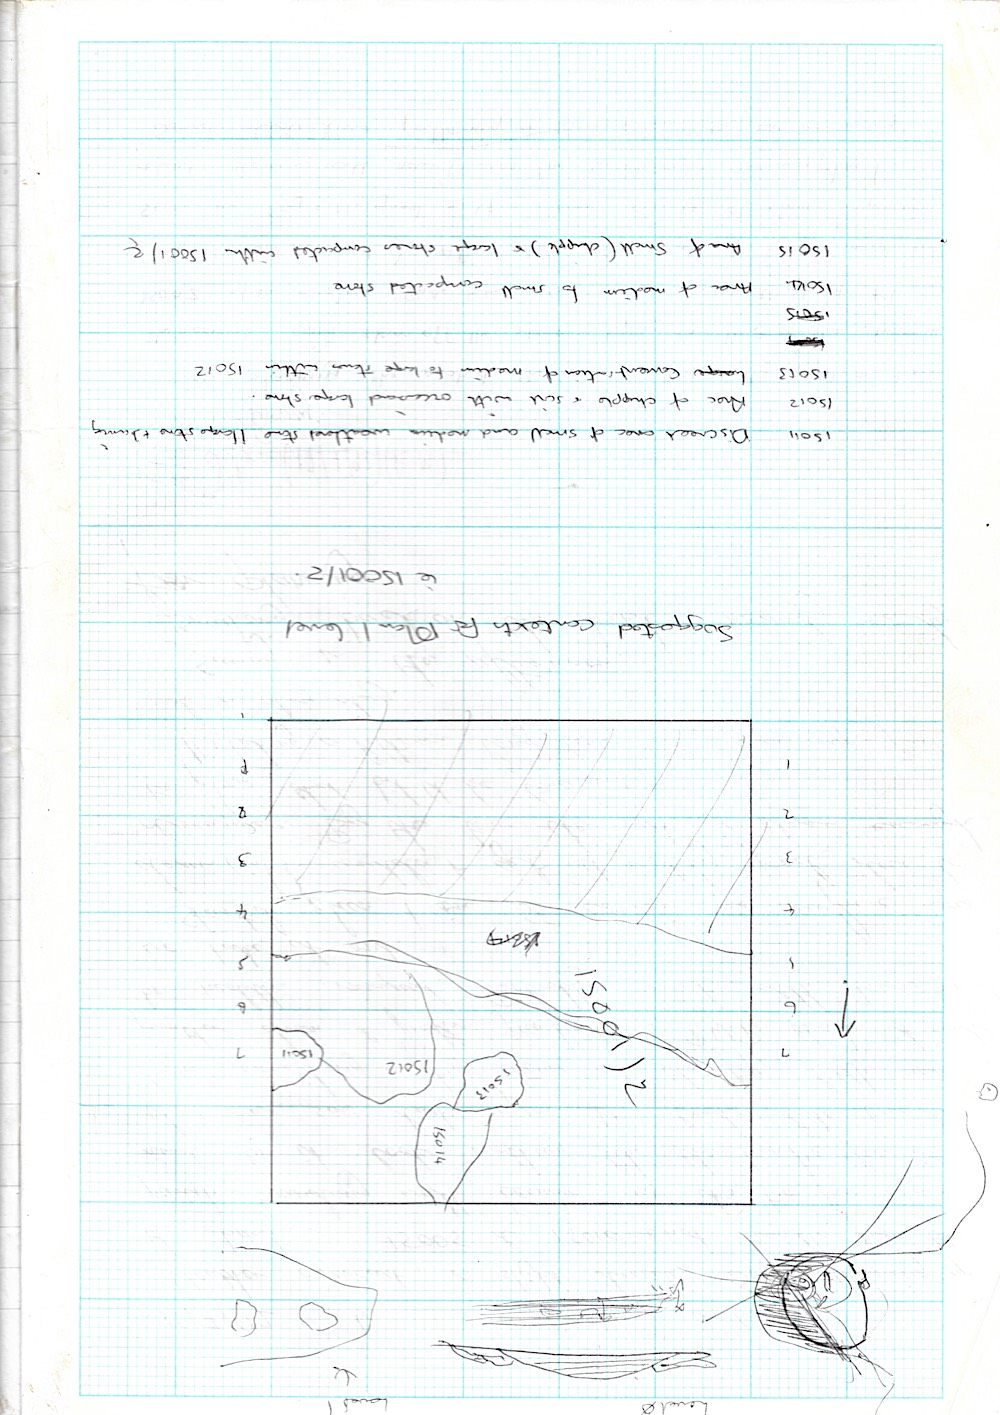 Level 0 Level 1
15014
15013
15012
15011
15001/2
7 7
6 6
5 5
4 4
3 3
2 2
1 1
Suggested contexts for Plan 1 level
ie 15001/2.
15011 Discreet area of small and medium weathered stone 1 large stone +
15012 Area of chipple + soil with occasional large stone.
15013 Large Concentration of medium to large stones within 15012
15015
15014 Area of medium to small compacted stone
15015 Area of small (chipple) + large stones compacted with 15001/2